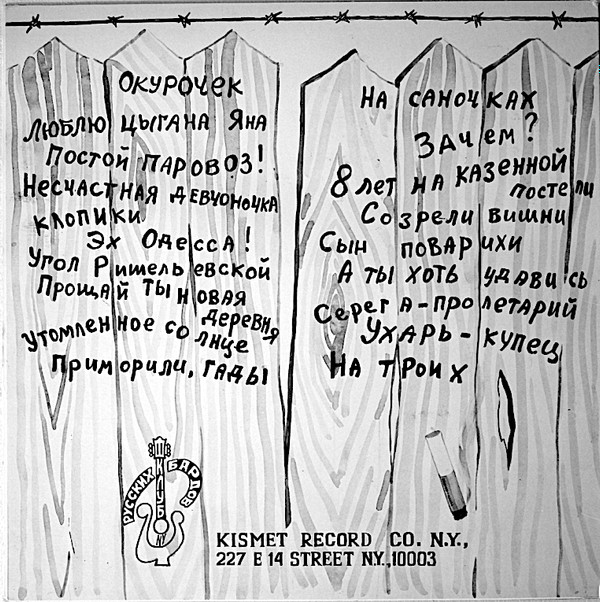 Окурочек
Люблю цыгана Яна
Постой паровоз!
Несчастная девчоночка
Клопики
Эх Одесса!
Угол Ришельевской
Прощай ты новая
деревня
Утомленное солнце
Приморили, гады
На саночках
Зачем?
8 лет на казенной
постели
Созрели вишни
Сын поварихи
А ты хоть удавись
Серега-пролетарий
Ухарь-купец
На троих
РУССКИХ БАРДОВ
КЛУБ
NY
KISMET RECORD CO. N.Y.,
227 E 14 STREET N.Y.,10003